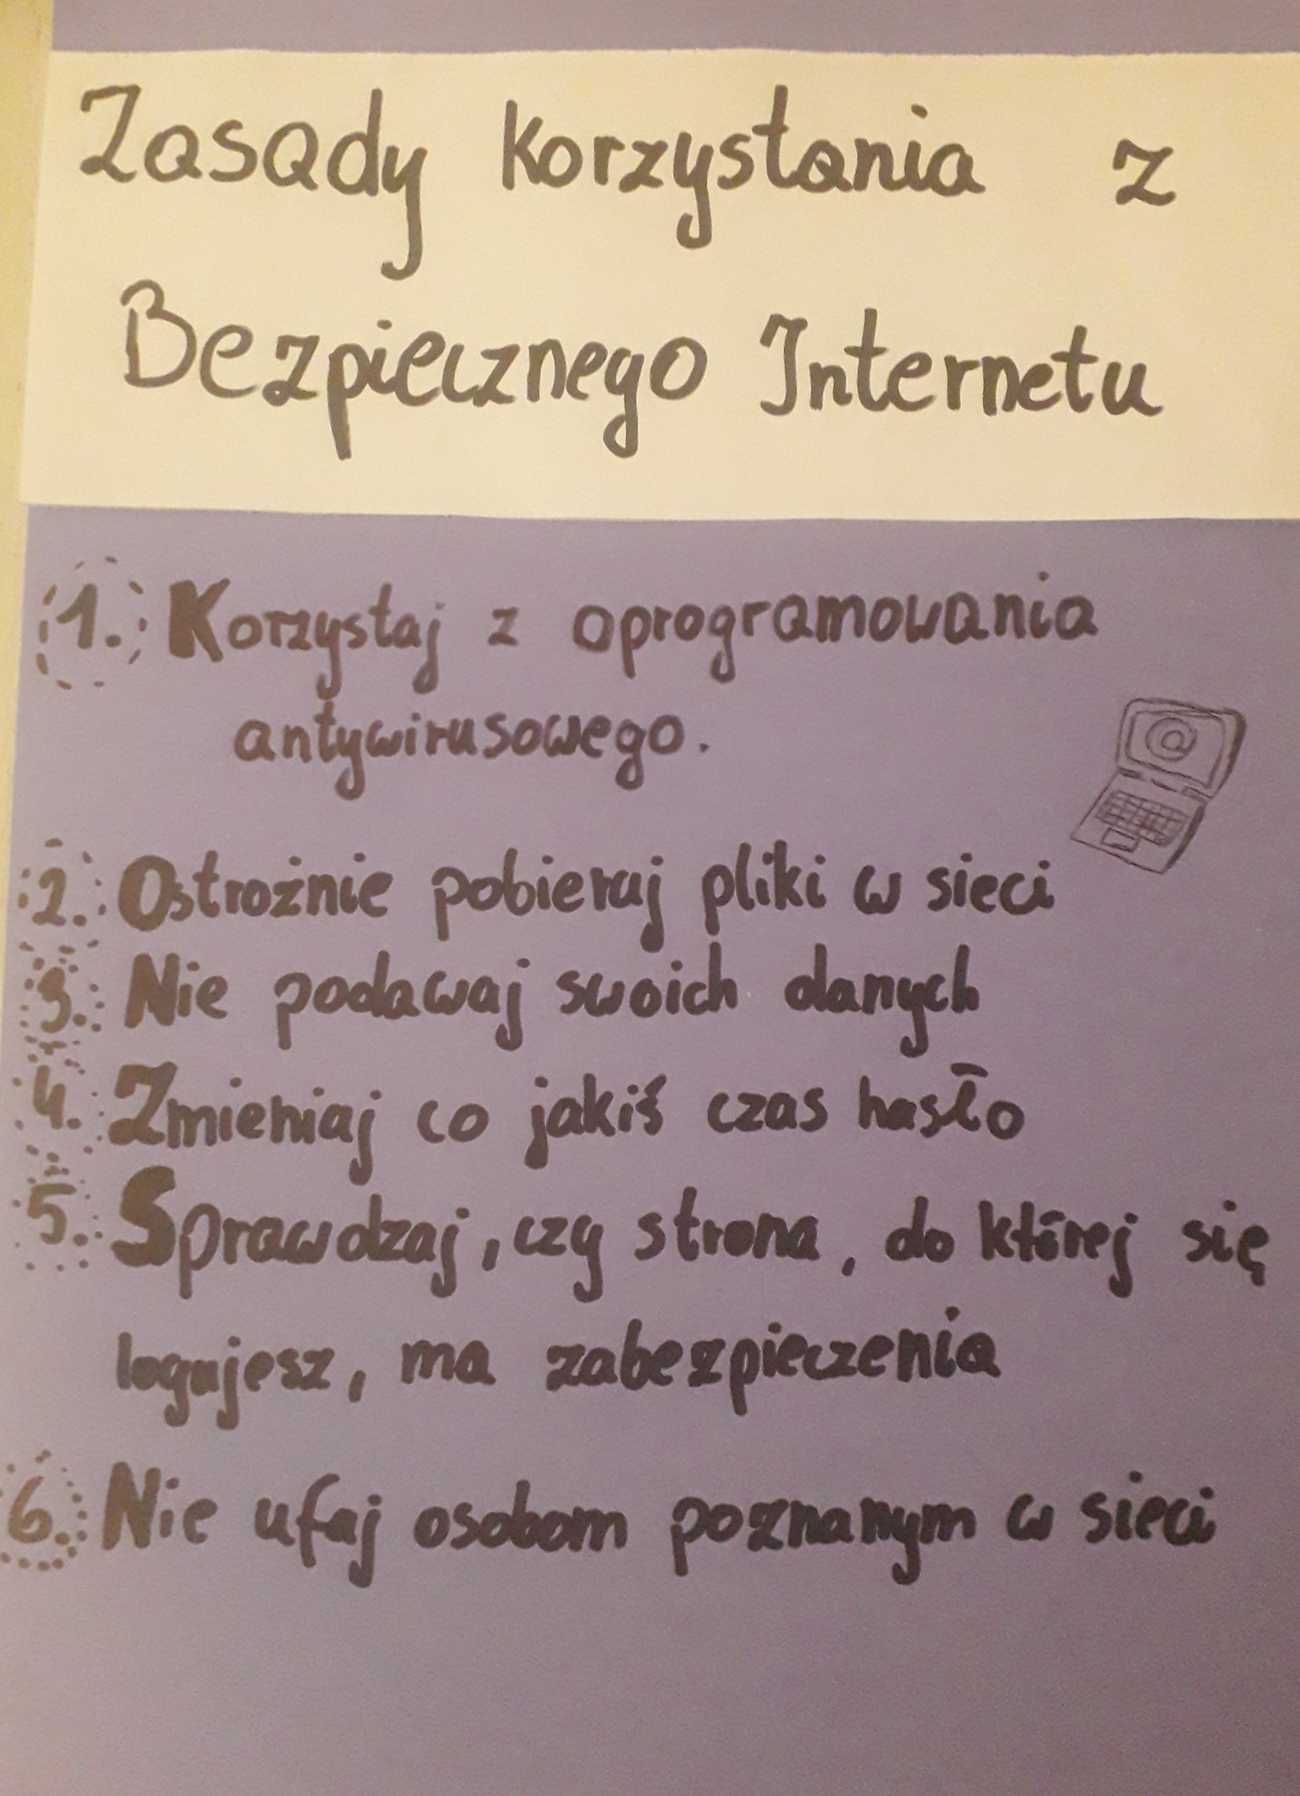 Zasady korzystania z
Bezpiecznego Internetu
1. Korzystaj z oprogramowania
antywirusowego.
@
2. Ostrożnie pobieraj pliki w sieci
3. Nie podawaj swoich danych
4. Zmieniaj co jakiś czas hasło
5. Sprawdzaj, czy strona, do której się
logujesz, ma zabezpieczenia
6. Nie ufaj osobom poznanym w sieci